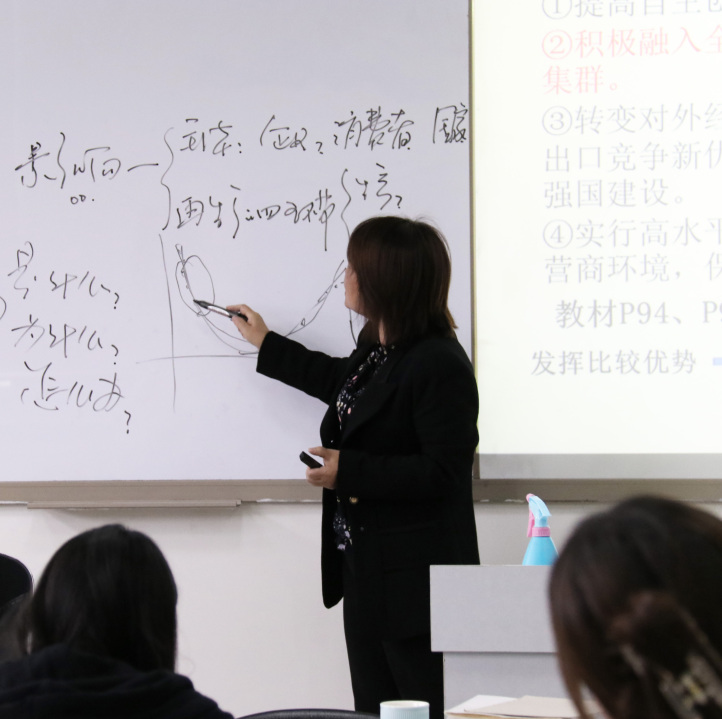 影响
主体：企业？消费者 国家
再生产的四环节 生产？
是什么？
为什么？
怎么办？
①提高自主创
②积极融入全
集群。
③转变对外经
出口竞争新优
强国建设。
④实行高水平
营商环境，保
教材P94、P9
发挥比较优势